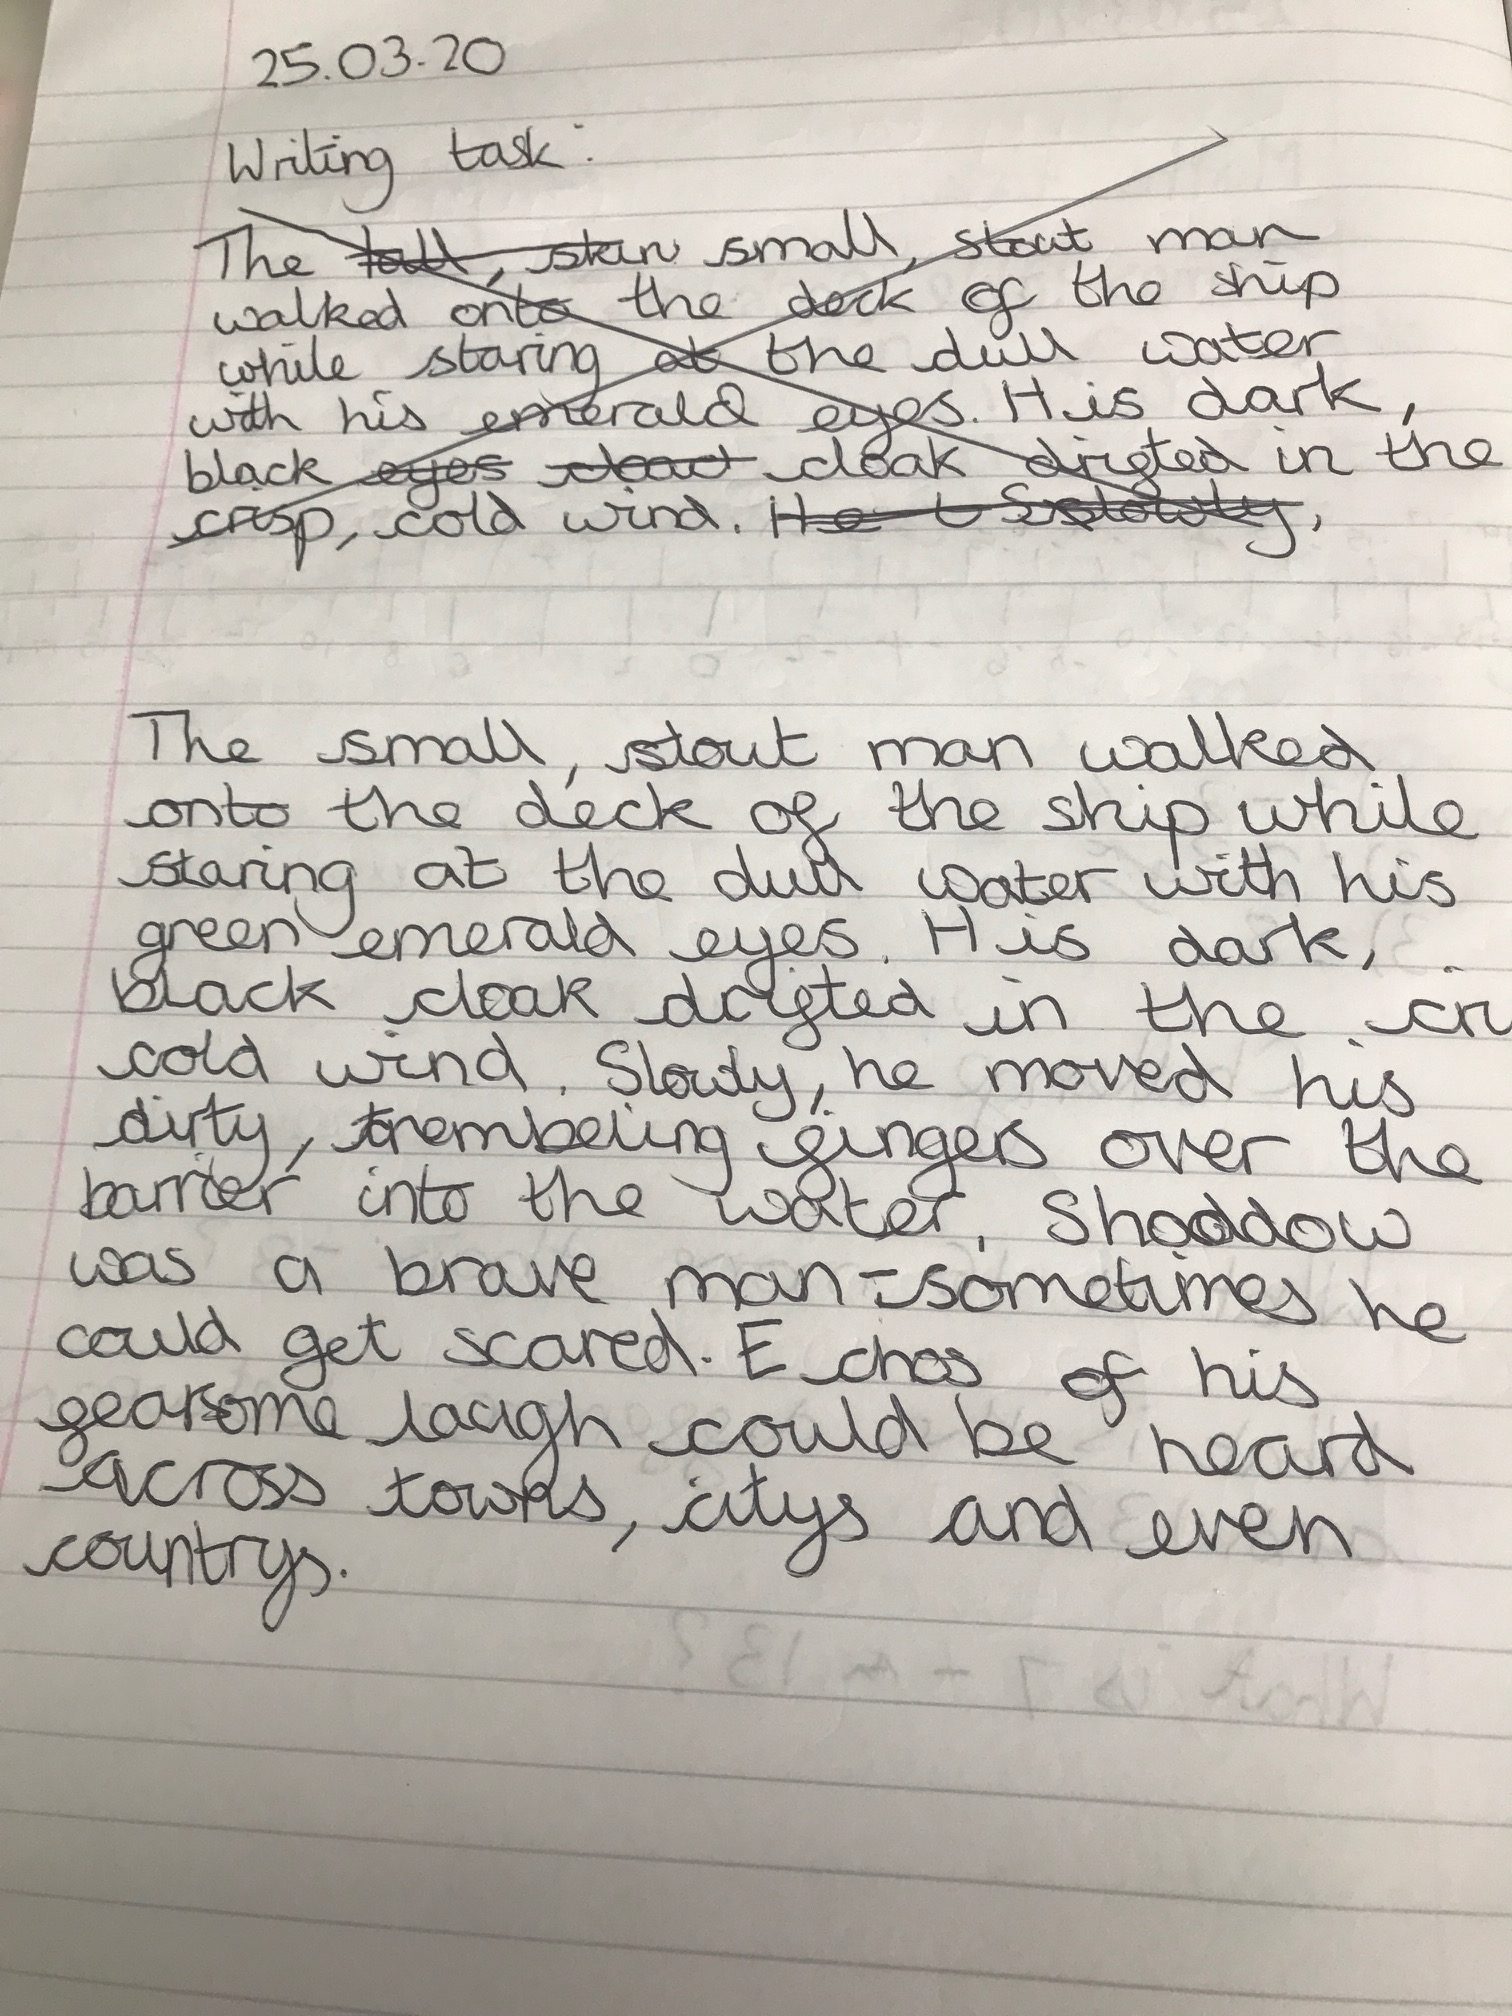 25.03.20
Writing task:
The tall, skin small, stout man
walked onto the deck of the ship
while staring at the dull water
with his emerald eyes. His dark,
black eyes cloack cloak drifted in the
crisp, cold wind. He Slowly,
The small, stout man walked
onto the deck of the ship while
staring at the dull water with his
green emerald eyes. His dark,
black cloak drifted in the cri
cold wind. Slowly, he moved his
dirty, trembeling fingers over the
barrier into the water. Shaddow
was a brave man-sometimes he
could get scared. Echos of his
fearsome laugh could be heard
across towns, citys and even
countrys.
What is 7 - 13?